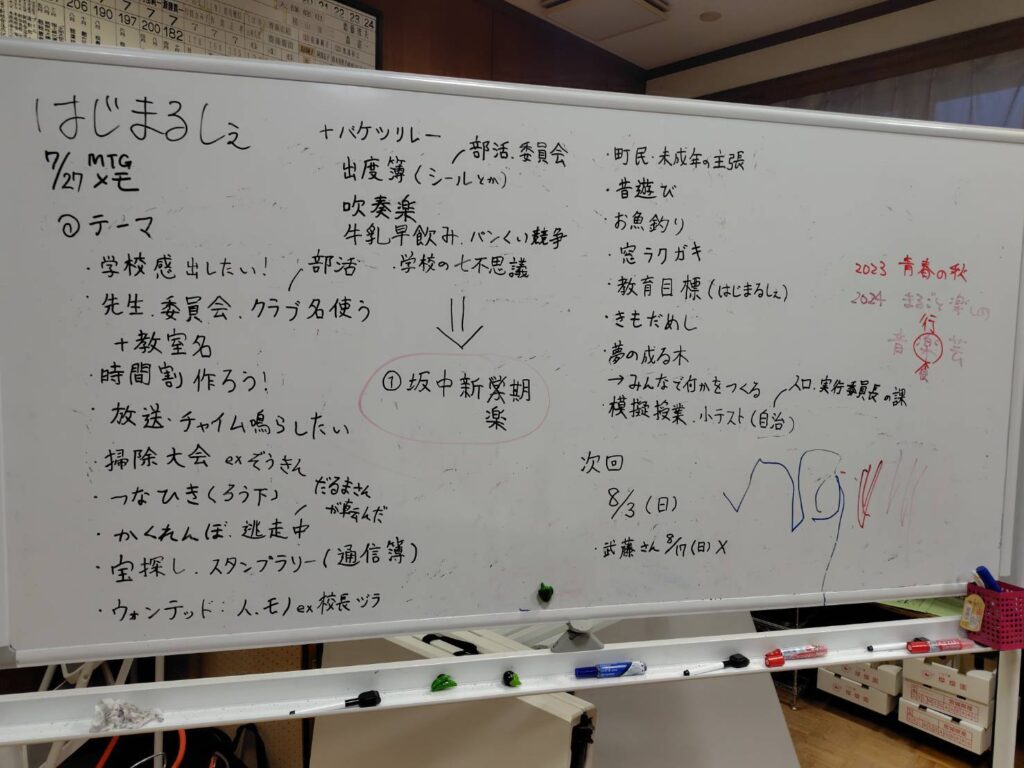 21 22 23 24
206 190 197 200 182
7 7 7 7
はじまるしぇ
7/27 MTGメモ
②テーマ
・学校感出したい!
部活
・先生.委員会.クラブ名使う
+教室名
・時間割作ろう!
・放送・チャイム鳴らしたい
・掃除大会 exぞうきん
・つなひき(ろう下)
だるまさんが転んだ
・かくれんぼ.逃走中
・宝探し.スタンプラリー(通信簿)
・ウォンテッド:人.モノex校長ヅラ
+バケツリレー
部活.委員会
出度簿(シールとか)
吹奏楽
牛乳早飲み.パンくい競争
・学校の七不思議
①坂中新学期
楽
・町民・未成年の主張
・昔遊び
・お魚釣り
・窓ラクガキ
・教育目標(はじまるしぇ)
・きもだめし
・夢の成る木
→みんなで何かをつくる
入口.実行委員長の課
・模擬授業.小テスト(自治)
次回
8/3(日)
・武藤さん8/17(日)X
2023 青春の秋
2024 まるごと楽しの
行
音楽芸
食